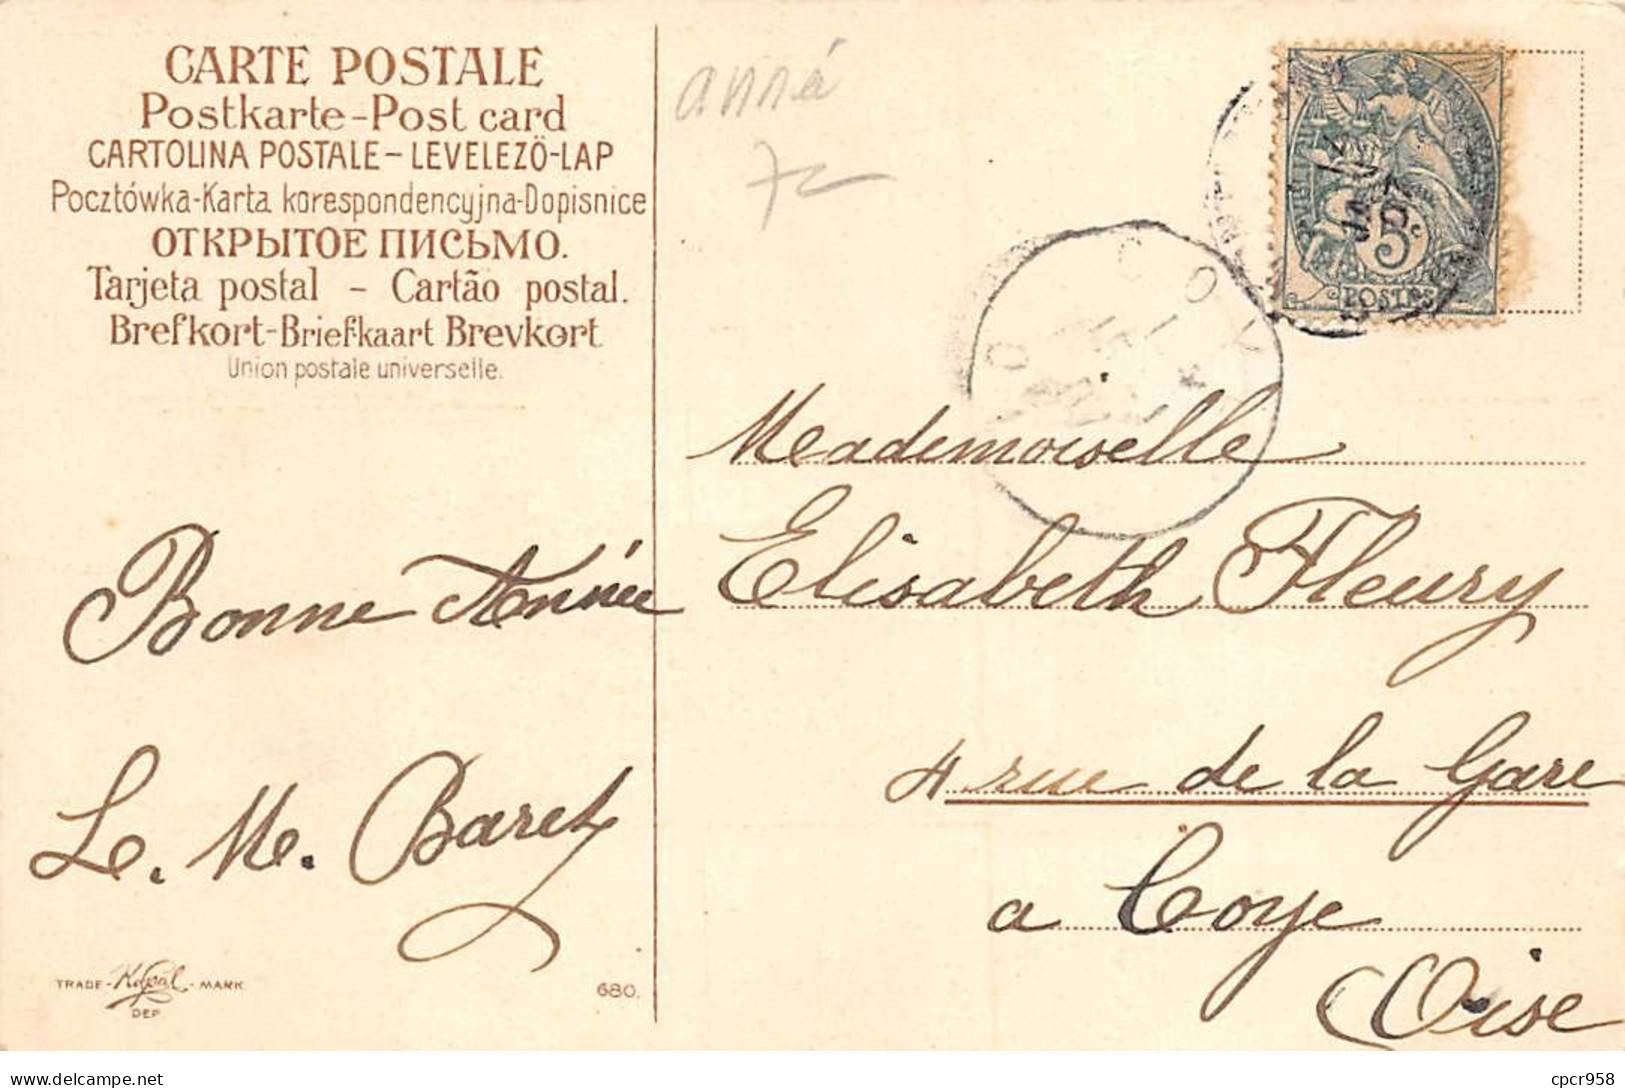 CARTE POSTALE
Postkarte-Post card
CARTOLINA POSTALE – LEVELEZÖ-LAP
Pocztówka-Karta korespondencyjna-Dopisnice
ОТКРЫТОЕ ПИСЬМО.
Tarjeta postal – Cartão postal.
Brefkort-Briefkaart Brevkort
Union postale universelle.
Bonne Année
L. M. Baret
TRADE - - MARK
DEP.
680.
5c
POSTES
COY
Mademoiselle
Elisabeth Fleury
4 rue de la Gare
a Coye
Oise
cpcr958